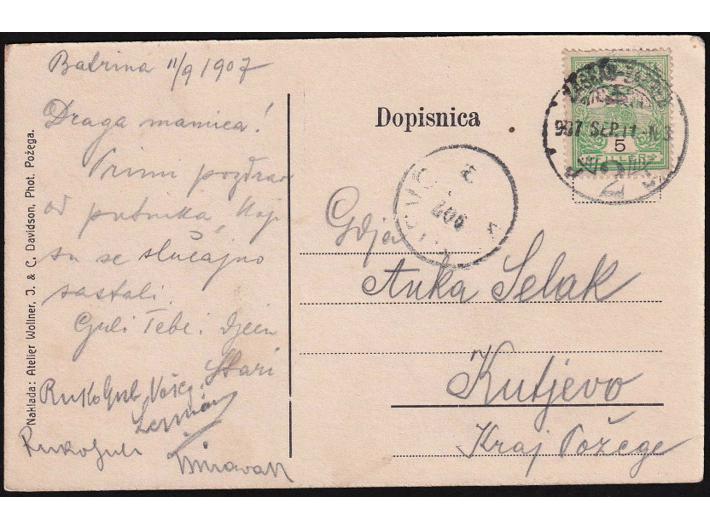 Batrina 11/9 1907
Draga mamica!
Primi pozdrav
od putnika, koji
su se slučajno
sastali.
Guli Tebe i djecu
Stari
RukoljubVašeg
Rukoljub
Naklada: Atelier Wollner, J. & C. Davidson, Phot. Požega.
Dopisnica
907 SEP. 11
5
FILLER
Gdja
Anka Selak
Kutjevo
Kraj Požege